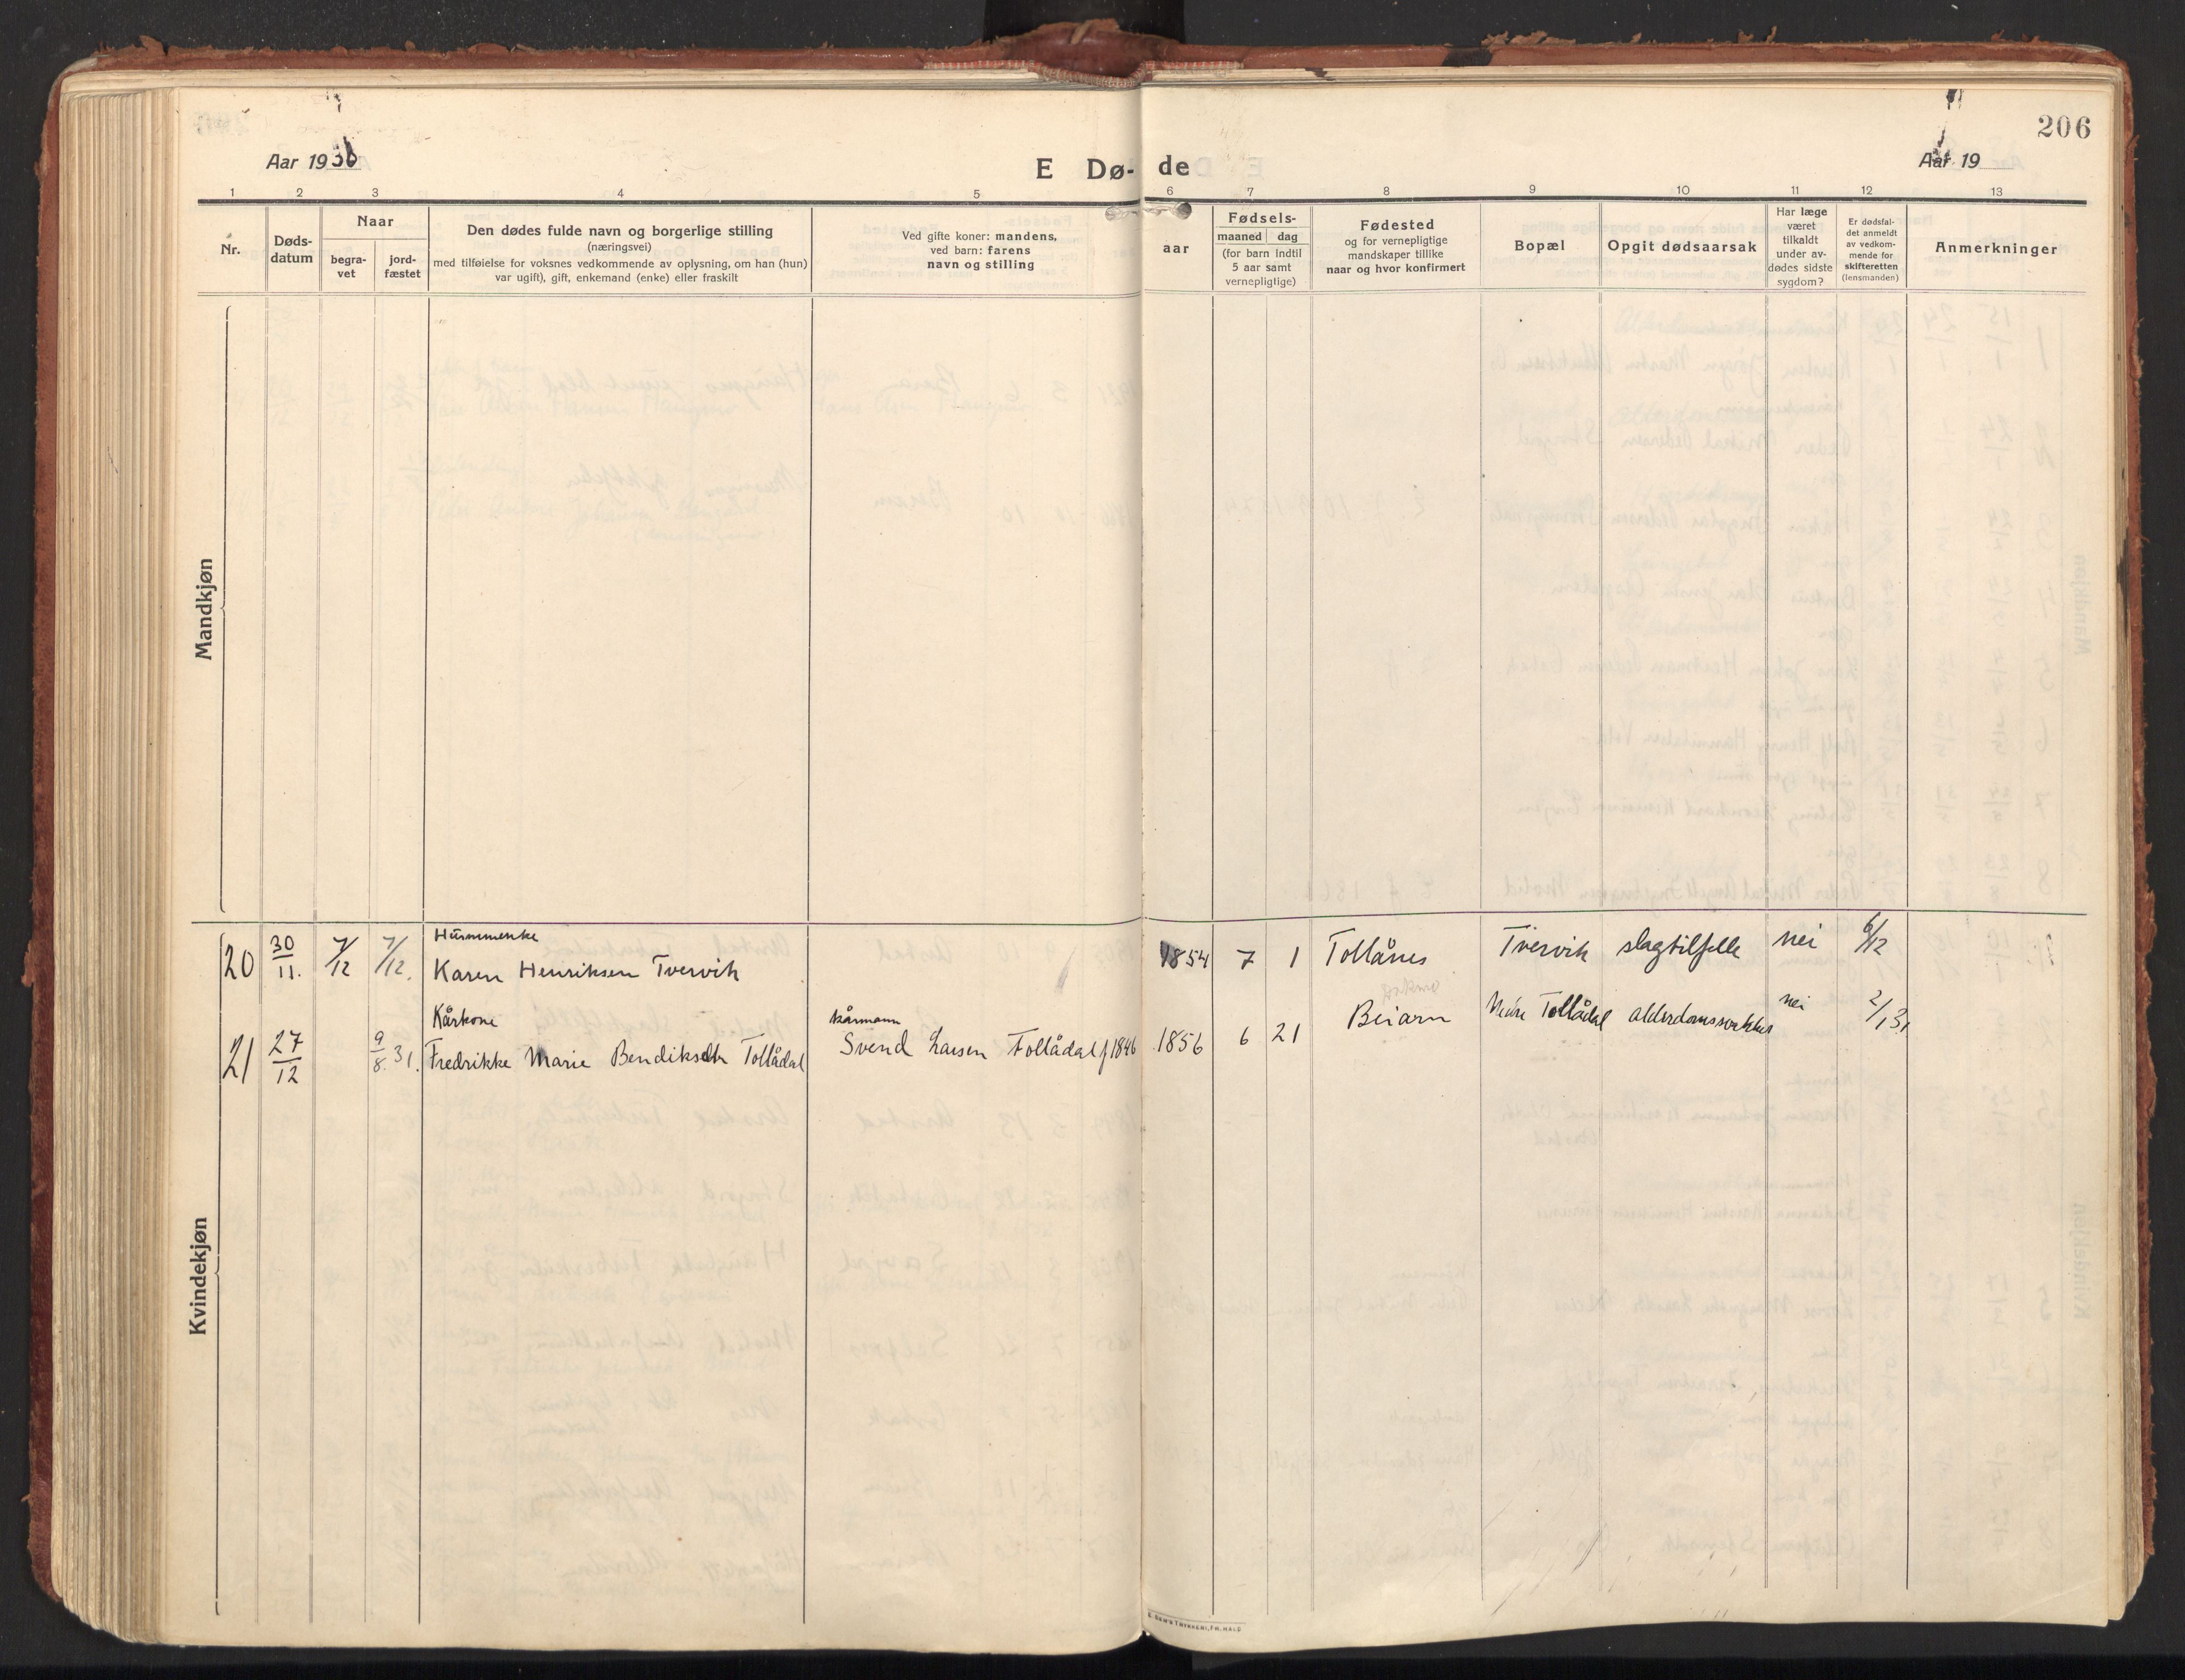 206
Aar 1930
E Dø-
de
Aar 19
1 2 3 4 5 6 7 8 9 10 11 12 13
Nr.
Døds-
datum
Naar
begra-
vet
jord-
fæstet
Den dødes fulde navn og borgerlige stilling
(næringsvei)
med tilføielse for voksnes vedkommende av oplysning, om han (hun)
var ugift), gift, enkemand (enke) eller fraskilt
Ved gifte koner: mandens,
ved barn: farens
navn og stilling
aar
Fødsels-
maaned dag
(for barn indtil
5 aar samt
vernepligtige)
Fødested
og for vernepligtige
mandskaper tillike
naar og hvor konfirmert
Bopæl
Opgit dødsaarsak
Har læge
været
tilkaldt
under av-
dødes sidste
sygdom?
Er dødsfal-
det anmeldt
av vedkom-
mende for
skifteretten
(lensmanden)
Anmerkninger
Mandkjøn
Kvindekjøn
Husmmenke
20 30/11. 7/12 7/12. Karen Henriksen Tvervik 1854 7 1 Tollånes Tvervik slagtilfelle nei 6/12
Kårkone kårmann
21 27/12 9/8. 31. Fredrikke Marie Bendiksdtr Tollådal Svend Larsen Tollådal f 1846 1856 6 21 Beiarn Nedre Tollådal alderdomssvakhet nei 2/1 31
E. SEM'S TRYKKERI, FR. HALD